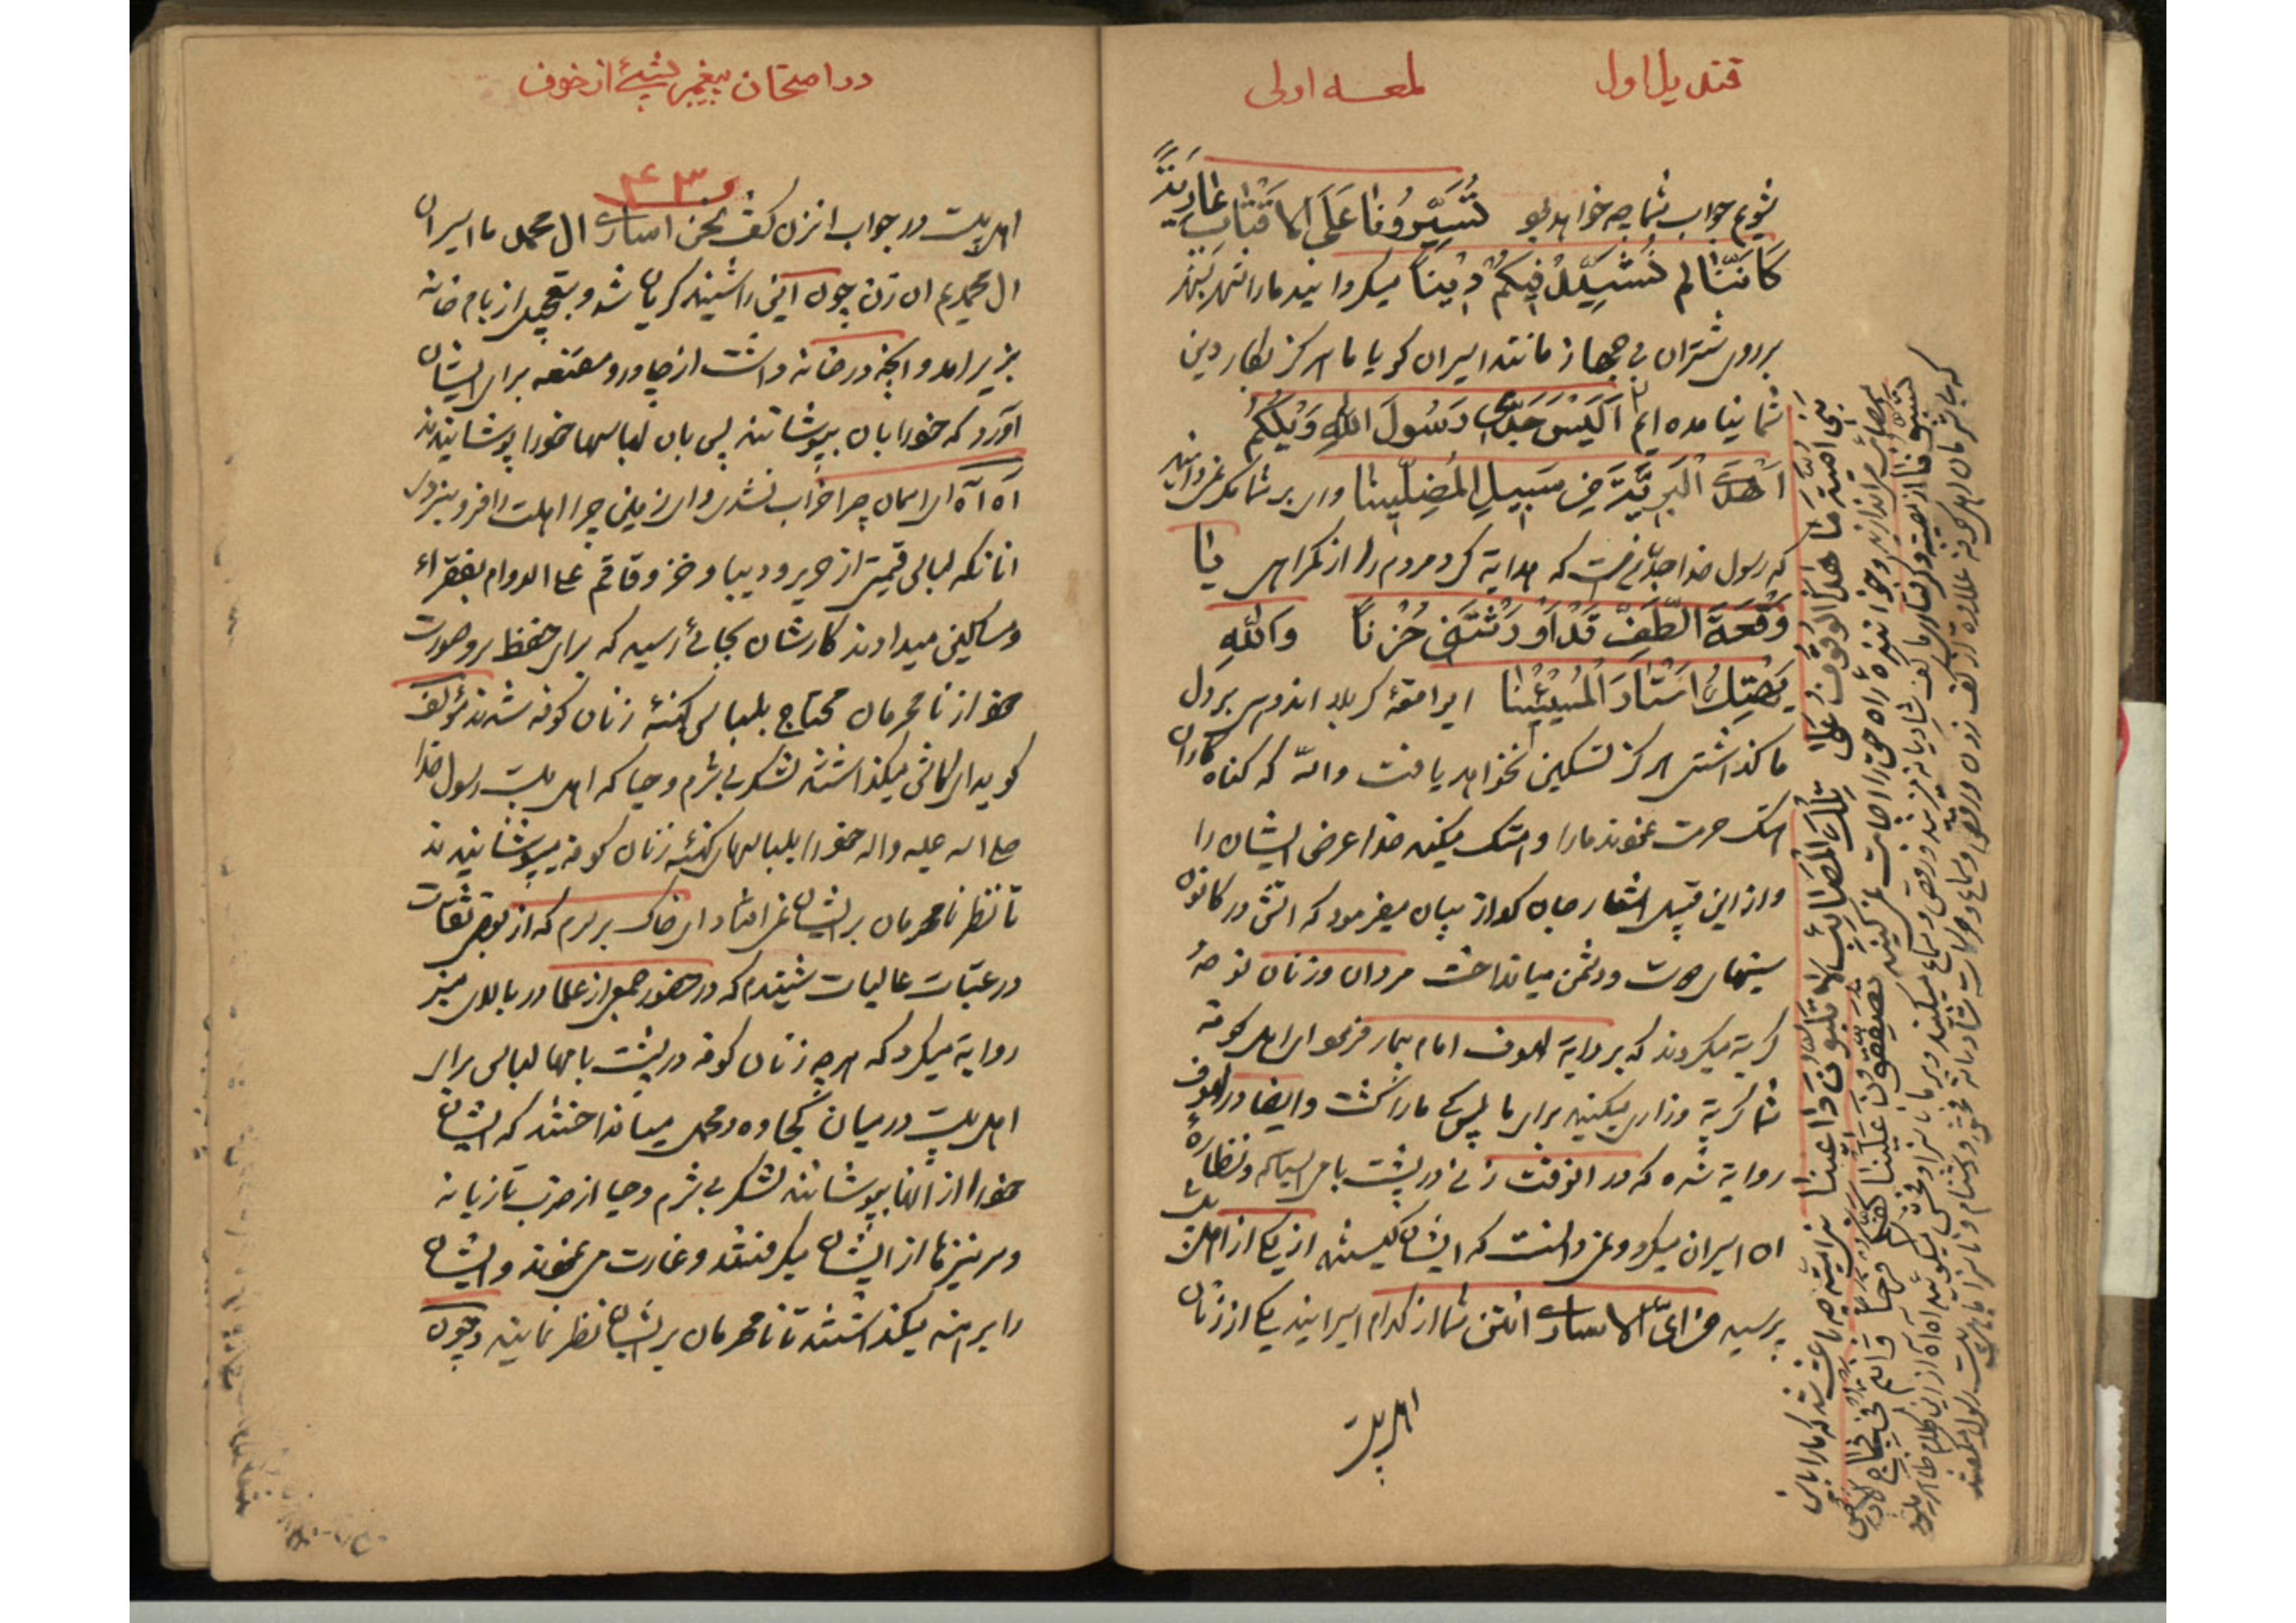 قندیل اول
لمعه اولی
شویم جواب شما چه خواهد بود تُسَیِّرُونٰا عَلَی الاَقْتٰابِ عٰارِیَةً
کَاَنَّنٰا لم نُشَیِّدْ فیکُمْ دینًا میکردانید ما را شهر بشهر
بر روی شتران بی جهاز مانند اسیران کویا ما هرکز بکار دین
شما نیامده ایم اَلَیْسَ جَدّی رَسُولَ اللهِ وَیْلَکُمُ
اَهْدَی الْبَرِیَّةَ مِن سَبیلِ المُضِلّینٰا وای بر شما مکر نمیدانید
که رسول خدا جدّ منست که هدایة کرد مردم را از کمراهی یٰا
وَقْعَةَ الطَّفِّ قَدْ اَوْرَثْتَنی حُزْنًا وَاللهِ
یَهْتِكُ اَسْتٰارَ الْمُسیئینٰا ای واقعهٔ کربلا اندوهی بر دل
ما کذاشتی هرکز تسکین نخواهد یافت والله که کناه کاران
هتک حرمت نمودند ما را و هتک میکند خدا عرض ایشان را
و از این قبیل اشعار جان کداز بیان میفرمود که اتش در کانون
سینهای دوست و دشمن میانداخت مردان و زنان نوحه
کریة میکردند که بروایة لهوف امام بیمار فرمود ای اهل کوفه
شما کریة و زاری میکنید برای ما پس کی ما را کشت و ایضا در لهوف
روایة شده که در انوقت زنی در پشت بامی ایستاده و نظاره
ان اسیران میکرد و نمیدانست که ایشان کیستند از یکی از اهلبیت
پرسید من ایّ الاساری انتن شما از کدام اسیرانید یکی از زنان
اهل بیت
بَنی اُمَیَّةَ مٰا هٰذَا الْوُقُوفُ عَلٰی تِلْكَ الْمَصٰائِبِ لاٰ تَلْبُونَ دٰاعینٰا بنی امیّه چه باعث شد که ما را باین
مصائب میاندازید و خوانندهٔ راه حق را اجابت نمیکنید تُصَفِّقُونَ عَلَیْنٰا کَفَّکُمْ فَرَحًا وَاَنْتُم فی فِجٰاجِ الاَرضِ
در امتحان پیغمبر بشیئ از خوف
۴۳
اهل بیت در جواب انزن کفت نحن اساری ال محمد ما اسیران
ال محمدیم ان زن چون این را شنید کریان شد و بتعجیل از بام خانه
بزیر امد و انچه در خانه داشت از چادر و مقنعه برای ایشان
آورد که خود را بان بپوشانند پس بان لباسها خود را پوشانیدند
آه آه ای اسمان چرا خراب نشدی و ای زمین چرا اهلت را فرو نبردی
انانکه لباس قیمتی از حریر و دیبا و خز و قاقم علی الدوام بفقراء
و مساکین میدادند کارشان بجائی رسید که برای حفظ بر و صورت
خود از نامحرمان محتاج بلباس کهنهٔ زنان کوفه شدند مؤلف
کوید ای کاش میکذاشتند لشکر بی شرم و حیا که اهل بیت رسول خدا
صلی الله علیه واله خود را بلباسهای کهنهٔ زنان کوفه میپوشانیدند
تا نظر نامحرمان بر ایشان نمی افتاد ای خاک بر سرم که از بعضی ثقات
در عتبات عالیات شنیدم که در حضور جمعی از علما در بالای منبر
روایة میکرد که هر چه زنان کوفه در پشت بامها لباس برای
اهل بیت در میان کجاوه و محمل میانداختند که ایشان
خود را از انها بپوشانند لشکر بی شرم و حیا از ضرب تازیانه
و سر نیزها از ایشان میکرفتند و غارت می نمودند و ایشان
را برهنه میکذاشتند تا نامحرمان بر ایشان نظر نمایند و چون